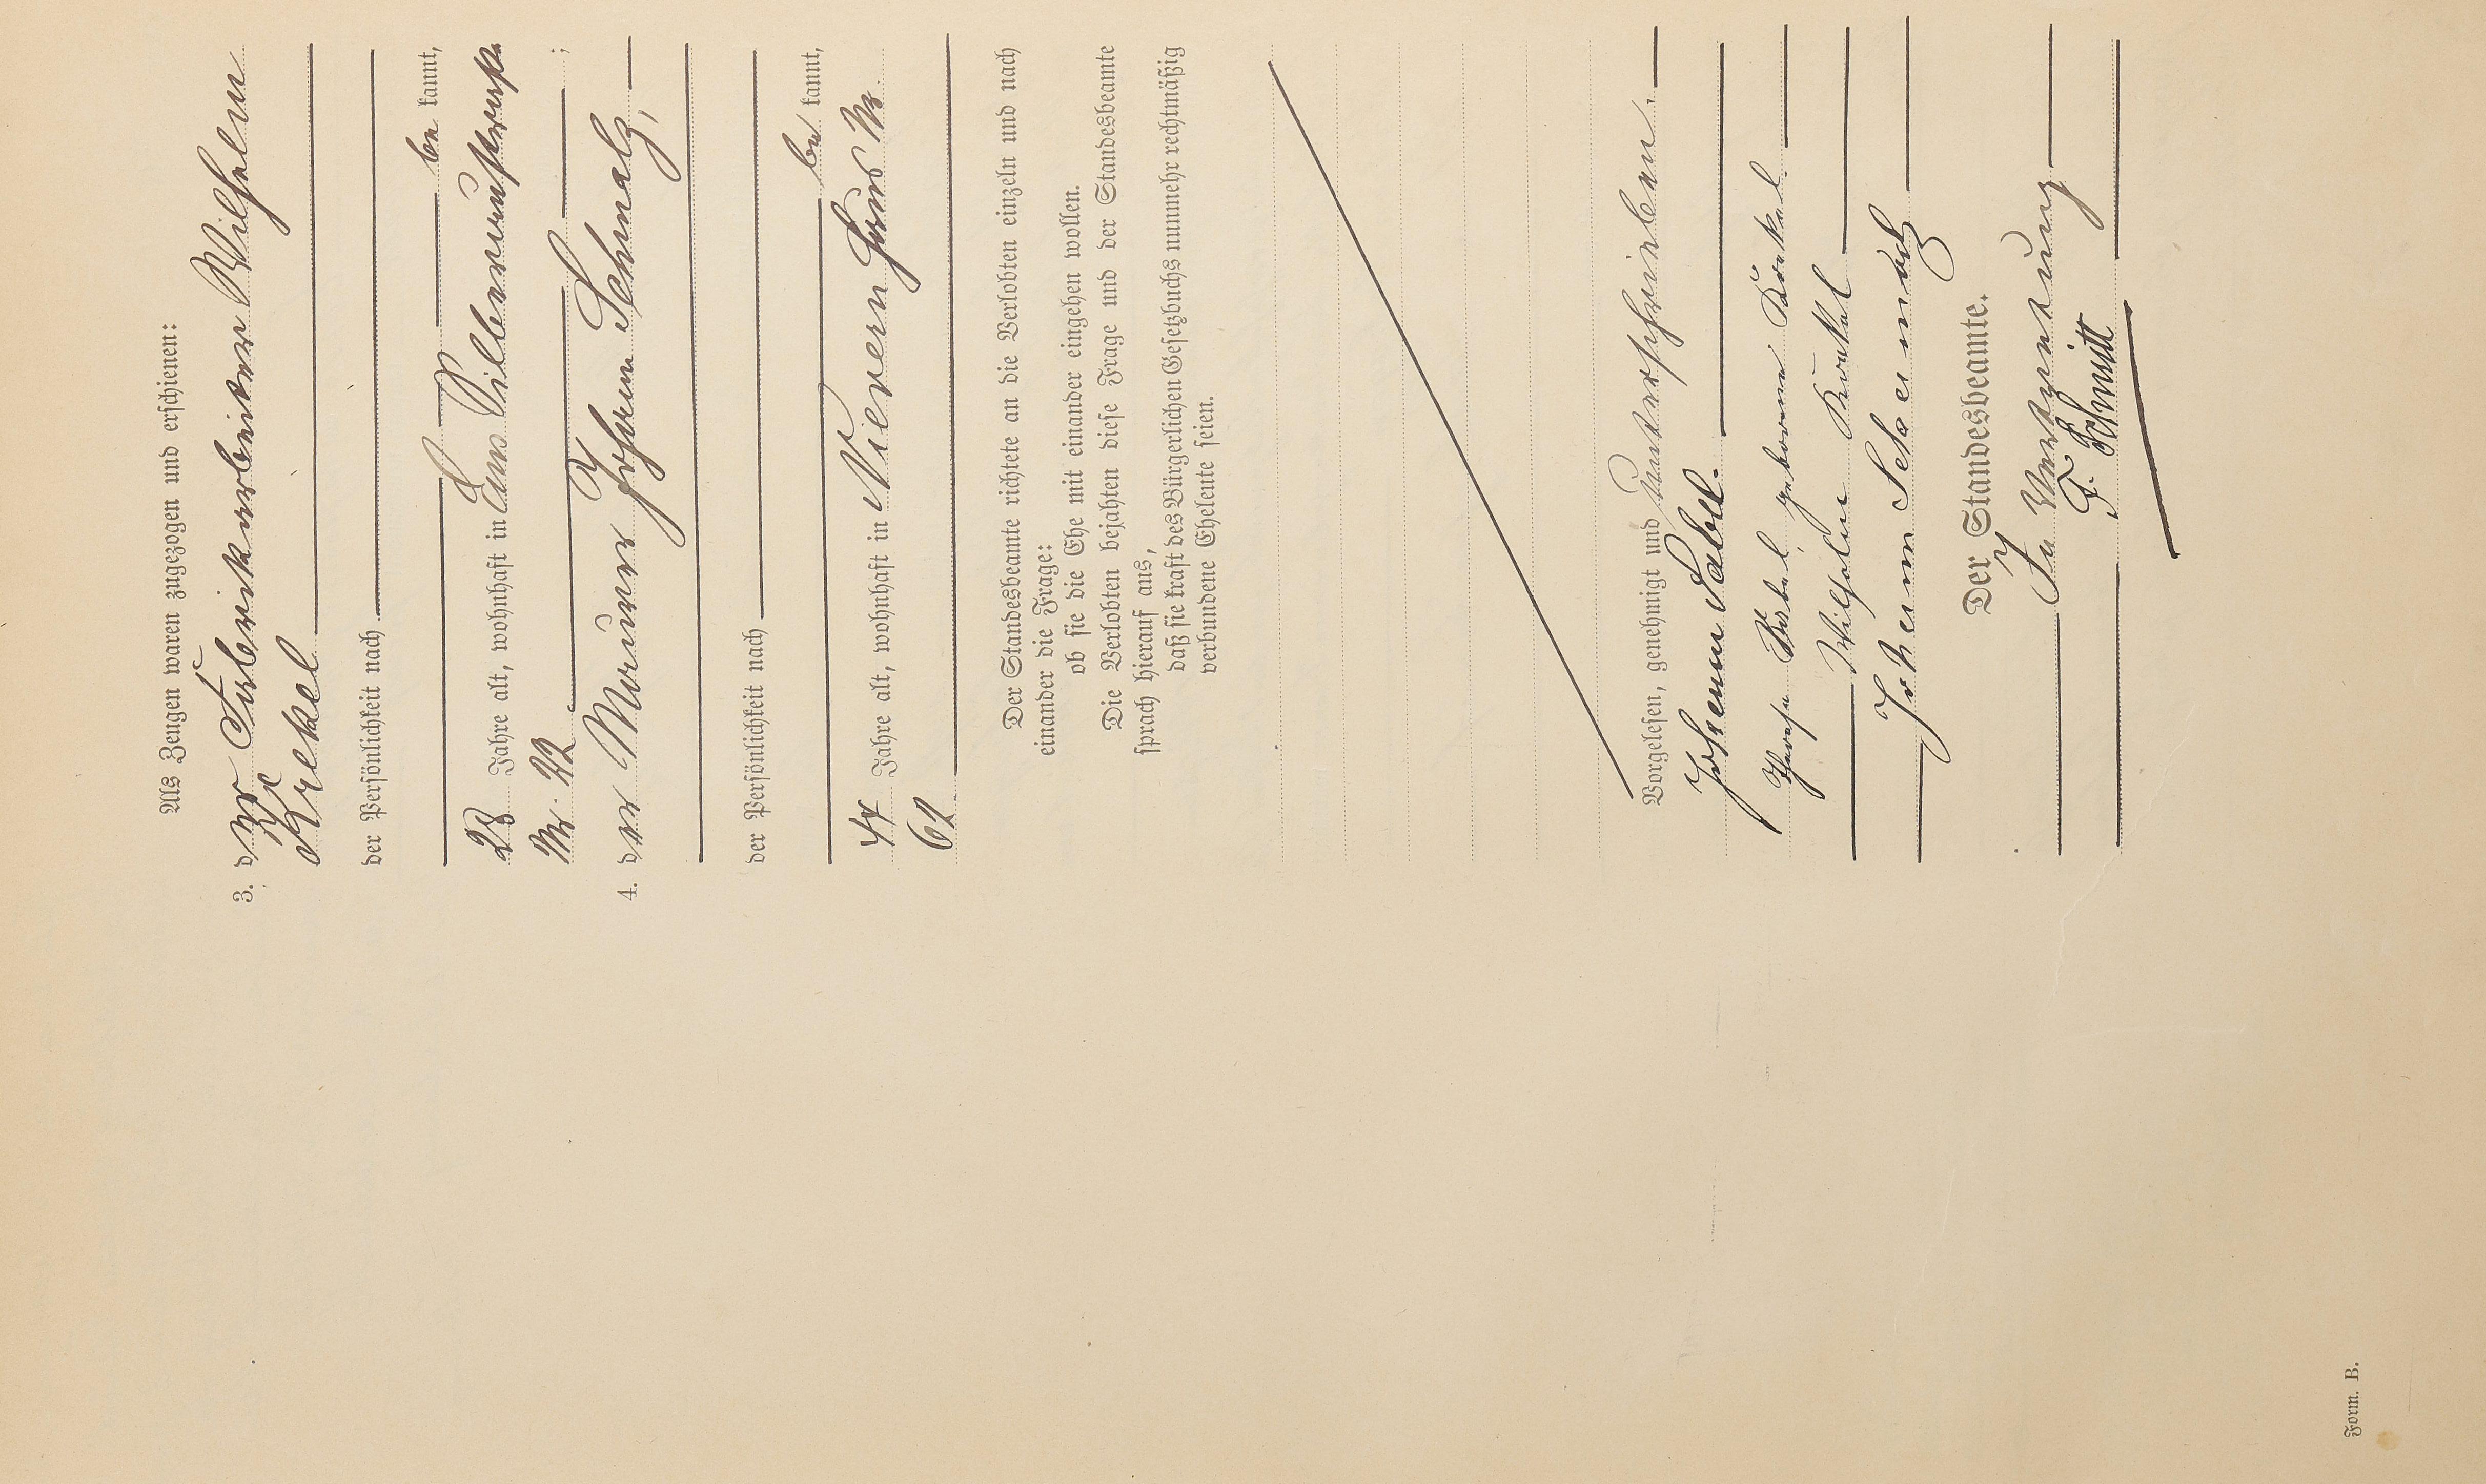 Als Zeugen waren zugezogen und erschienen:
3. der Fabrikarbeiter Wilhelm
Krekel
der Persönlichkeit nach
be kannt,
28 Jahre alt, wohnhaft in Ems Silberaustraße
Nr. 22 ;
4. der Maurer Johann Schmalz,
der Persönlichkeit nach
be kannt,
44 Jahre alt, wohnhaft in Nievern Haus Nr.
62.
Der Standesbeamte richtete an die Verlobten einzeln und nach
einander die Frage:
ob sie die Ehe mit einander eingehen wollen.
Die Verlobten bejahten diese Frage und der Standesbeamte
sprach hierauf aus,
daß sie kraft des Bürgerlichen Gesetzbuchs nunmehr rechtmäßig
verbundene Eheleute seien.
Vorgelesen, genehmigt und unterschrieben.
Johann Sabel.
Sabel, geborene Krekel
Wilhelm Krekel
Johann Schmalz
Der Standesbeamte.
In Vertretung
F. Schmitt
Form. B.